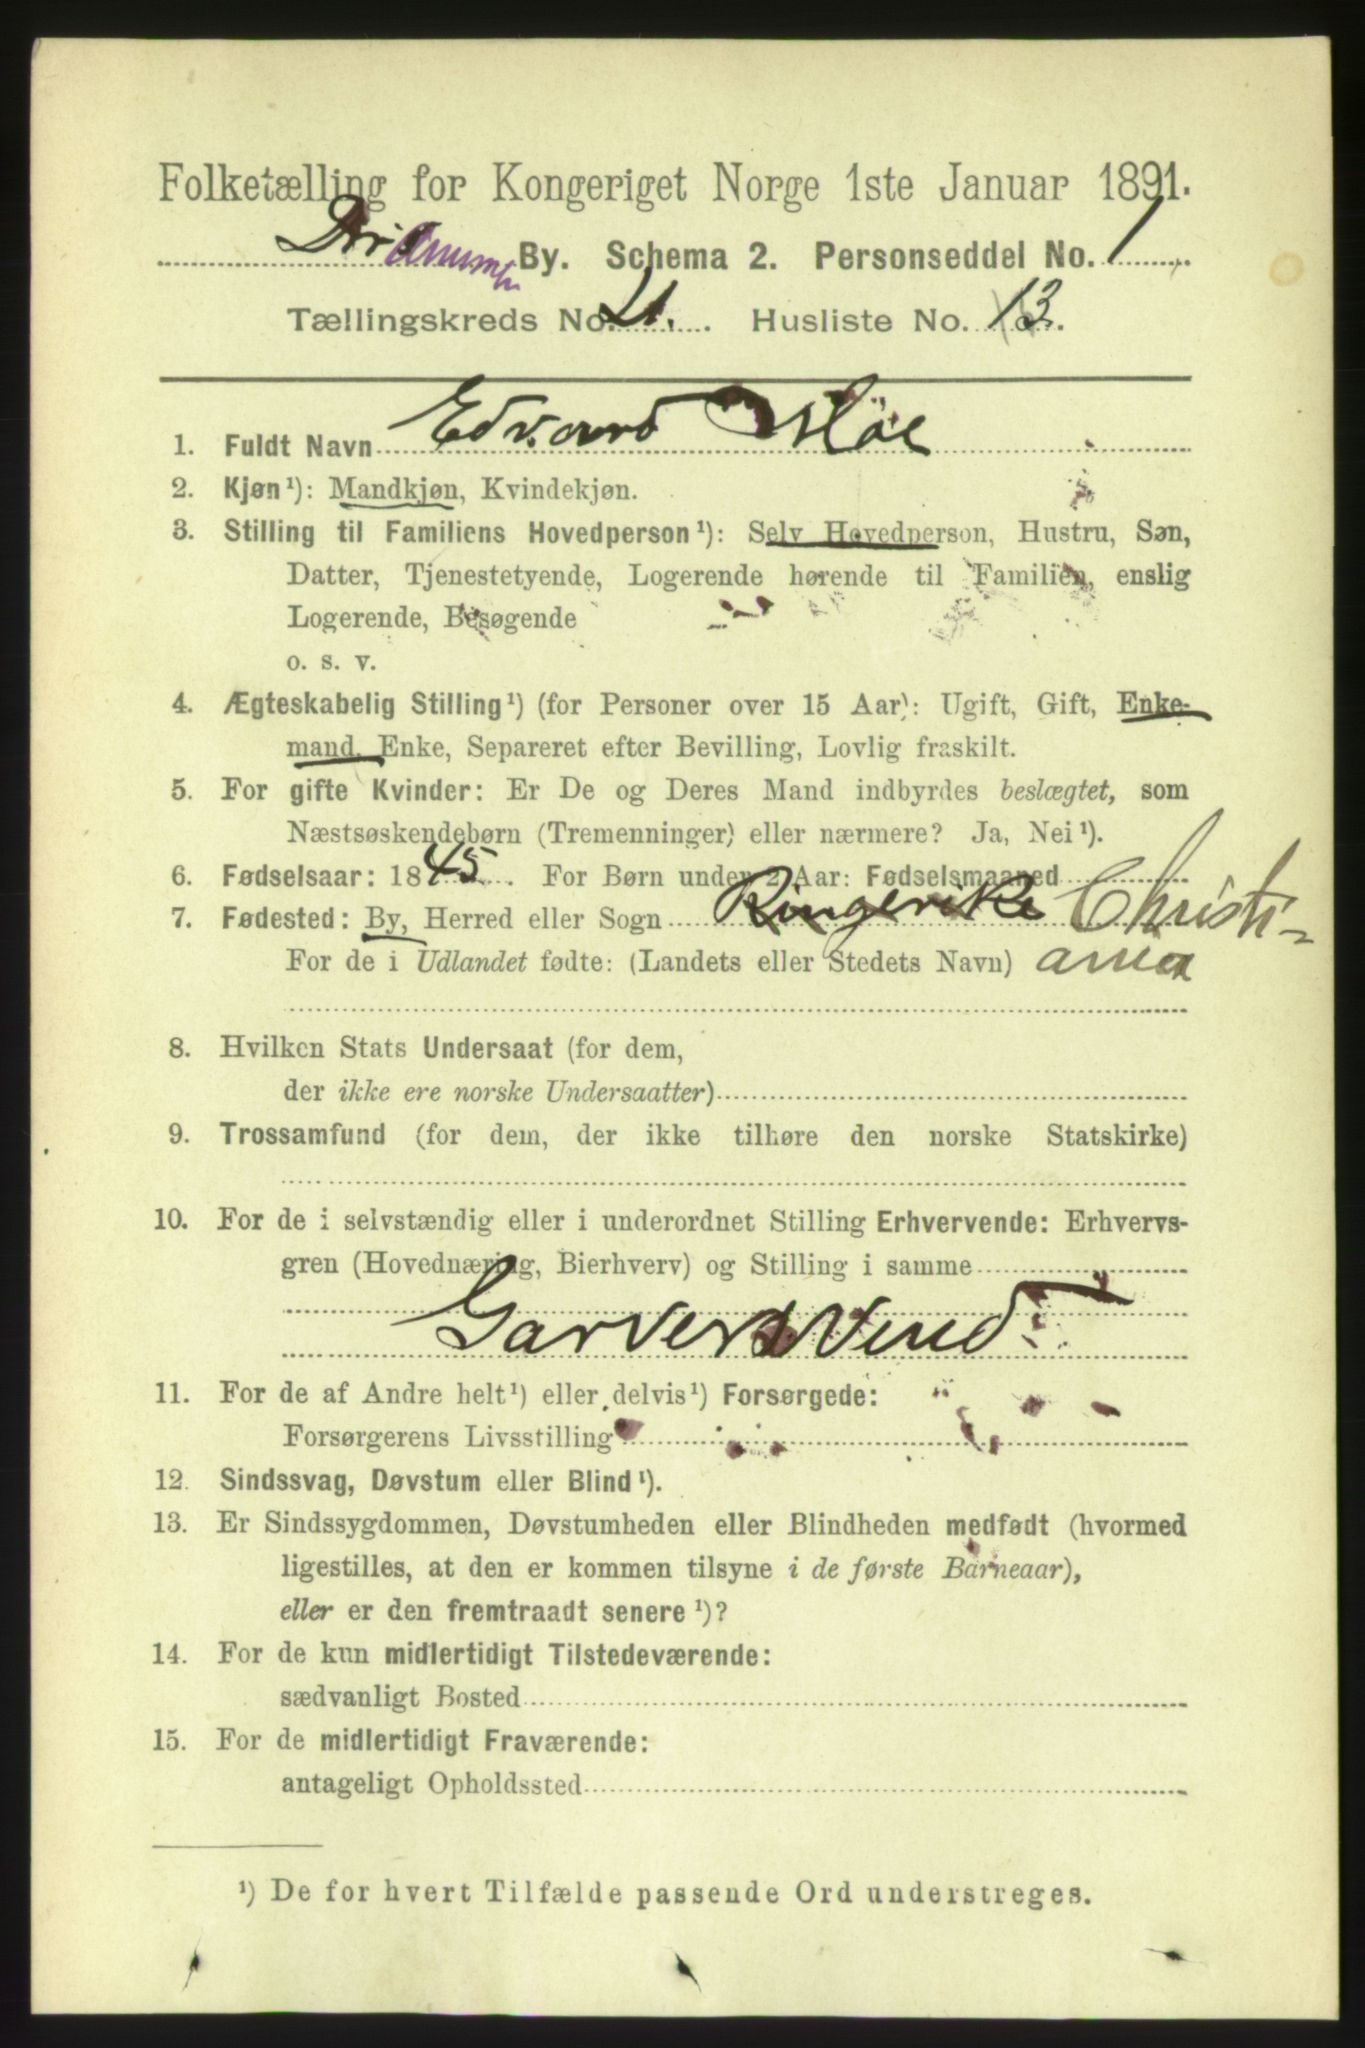 Folketælling for Kongeriget Norge 1ste Januar 1891.
Drammen By. Schema 2. Personseddel No. 1
Tællingskreds No. 21. Husliste No. 13.
1. Fuldt Navn Edvard Moe
2. Kjøn¹): Mandkjøn, Kvindekjøn.
3. Stilling til Familiens Hovedperson¹): Selv Hovedperson, Hustru, Søn,
Datter, Tjenestetyende, Logerende hørende til Familien, enslig
Logerende, Besøgende
o. s. v.
4. Ægteskabelig Stilling¹) (for Personer over 15 Aar): Ugift, Gift, Enke-
mand, Enke, Separeret efter Bevilling, Lovlig fraskilt.
5. For gifte Kvinder: Er De og Deres Mand indbyrdes beslægtet, som
Næstsøskendebørn (Tremenninger) eller nærmere? Ja, Nei¹).
6. Fødselsaar: 1845. For Børn under 2 Aar: Fødselsmaaned
7. Fødested: By, Herred eller Sogn Ringerike Christi-
For de i Udlandet fødte: (Landets eller Stedets Navn) ania
8. Hvilken Stats Undersaat (for dem,
der ikke ere norske Undersaatter)
9. Trossamfund (for dem, der ikke tilhøre den norske Statskirke)
10. For de i selvstændig eller i underordnet Stilling Erhvervende: Erhvervs-
gren (Hovednæring, Bierhverv) og Stilling i samme
Garversvend
11. For de af Andre helt¹) eller delvis¹) Forsørgede:
Forsørgerens Livsstilling
12. Sindssvag, Døvstum eller Blind¹).
13. Er Sindssygdommen, Døvstumheden eller Blindheden medfødt (hvormed
ligestilles, at den er kommen tilsyne i de første Barneaar),
eller er den fremtraadt senere¹)?
14. For de kun midlertidigt Tilstedeværende:
sædvanligt Bosted
15. For de midlertidigt Fraværende:
antageligt Opholdssted
¹) De for hvert Tilfælde passende Ord understreges.